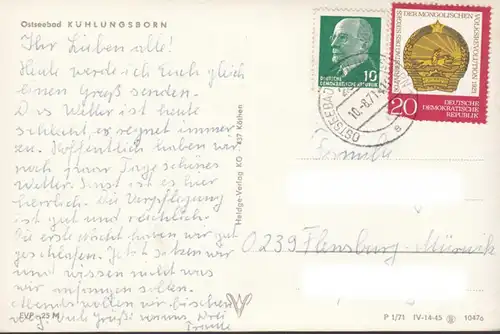 Ostseebad KÜHLUNGSBORN
Ihr Lieben alle!
Heute werde ich Euch gleich
einen Gruß senden.
Das Wetter ist heute
schlecht, es regnet immer
zu. Hoffentlich haben wir
noch paar Tage schönes
Wetter. Sonst ist es hier
herrlich. Die Verpflegung
ist gut und reichlich.
Die erste Nacht haben wir gut
geschlafen. Jetzt sitzen wir
und wissen nicht was
wir anfangen sollen.
Abends wollen wir bißchen
weg. Und Grüße von uns Drei
EVP -,25 M
Heldge-Verlag KG 437 Köthen
DEUTSCHE
DEMOKRATISCHE REPUBLIK
10
DER MONGOLISCHEN
VOLKSREVOLUTION 1921
DES SIEGES
20
DEUTSCHE
DEMOKRATISCHE
REPUBLIK
OSTSEEBAD
10.-8.71
Familie
0239 Flensburg-Mürwik
P 1/71 IV-14-45 10476